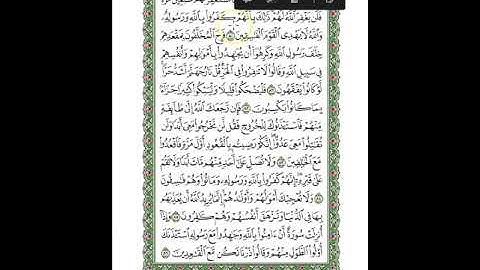 فَلَن يَغْفِرَ ٱللَّهُ لَهُمْ ذَٰلِكَ بِأَنَّهُمْ كَفَرُوا۟ بِٱللَّهِ وَرَسُولِهِۦ
وَٱللَّهُ لَا يَهْدِى ٱلْقَوْمَ ٱلْفَـٰسِقِينَ ٨٠ فَرِحَ ٱلْمُخَلَّفُونَ بِمَقْعَدِهِمْ
خِلَـٰفَ رَسُولِ ٱللَّهِ وَكَرِهُوٓا۟ أَن يُجَـٰهِدُوا۟ بِأَمْوَٰلِهِمْ وَأَنفُسِهِمْ
فِى سَبِيلِ ٱللَّهِ وَقَالُوا۟ لَا تَنفِرُوا۟ فِى ٱلْحَرِّ قُلْ نَارُ جَهَنَّمَ أَشَدُّ حَرًّا
لَّوْ كَانُوا۟ يَفْقَهُونَ ٨١ فَلْيَضْحَكُوا۟ قَلِيلًا وَلْيَبْكُوا۟ كَثِيرًا جَزَآءًۢ
بِمَا كَانُوا۟ يَكْسِبُونَ ٨٢ فَإِن رَّجَعَكَ ٱللَّهُ إِلَىٰ طَآئِفَةٍ
مِّنْهُمْ فَٱسْتَـْٔذَنُوكَ لِلْخُرُوجِ فَقُل لَّن تَخْرُجُوا۟ مَعِىَ أَبَدًا وَلَن
تُقَـٰتِلُوا۟ مَعِىَ عَدُوًّا إِنَّكُمْ رَضِيتُم بِٱلْقُعُودِ أَوَّلَ مَرَّةٍ فَٱقْعُدُوا۟
مَعَ ٱلْخَـٰلِفِينَ ٨٣ وَلَا تُصَلِّ عَلَىٰٓ أَحَدٍ مِّنْهُم مَّاتَ أَبَدًا وَلَا تَقُمْ
عَلَىٰ قَبْرِهِۦٓ إِنَّهُمْ كَفَرُوا۟ بِٱللَّهِ وَرَسُولِهِۦ وَمَاتُوا۟ وَهُمْ فَـٰسِقُونَ
٨٤ وَلَا تُعْجِبْكَ أَمْوَٰلُهُمْ وَأَوْلَـٰدُهُمْ إِنَّمَا يُرِيدُ ٱللَّهُ أَن يُعَذِّبَهُم
بِهَا فِى ٱلدُّنْيَا وَتَزْهَقَ أَنفُسُهُمْ وَهُمْ كَـٰفِرُونَ ٨٥ وَإِذَآ
أُنزِلَتْ سُورَةٌ أَنْ ءَامِنُوا۟ بِٱللَّهِ وَجَـٰهِدُوا۟ مَعَ رَسُولِهِ ٱسْتَـْٔذَنَكَ
أُو۟لُوا۟ ٱلطَّوْلِ مِنْهُمْ وَقَالُوا۟ ذَرْنَا نَكُن مَّعَ ٱلْقَـٰعِدِينَ ٨٦